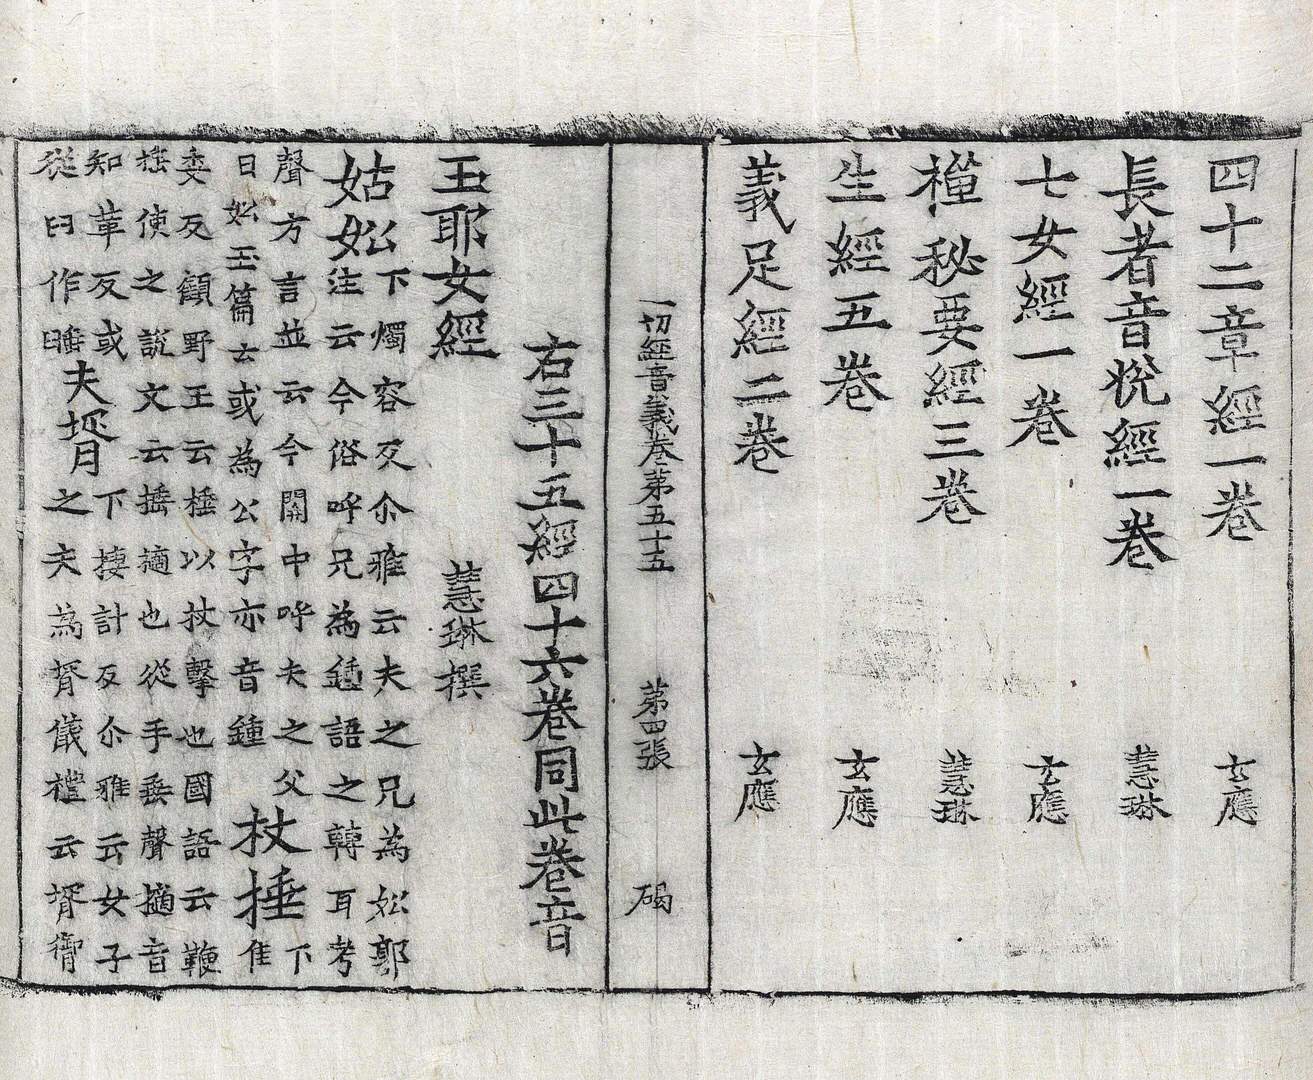 四十二章經一卷　玄應
長者音悅經一卷　慧琳
七女經一卷　玄應
禪秘要經三卷　慧琳
生經五卷　玄應
義足經二卷　玄應
一切經音義卷第五十五　第四張　碣
右三十五經四十六卷同此卷音
玉耶女經　慧琳撰
姑妐
下燭容反尒雅云夫之兄為妐郭
注云今俗呼兄為鍾語之轉耳考
聲方言並云今關中呼夫之父
曰妐玉篇云或為公字亦音鍾
杖捶
下
隹
委反顧野王云棰以杖擊也國語云鞭
捶使之說文云捶擿也從手垂聲擿音
知革反或
從臼作
夫壻
下棲計反尒雅云女子
之夫為壻儀禮云壻御